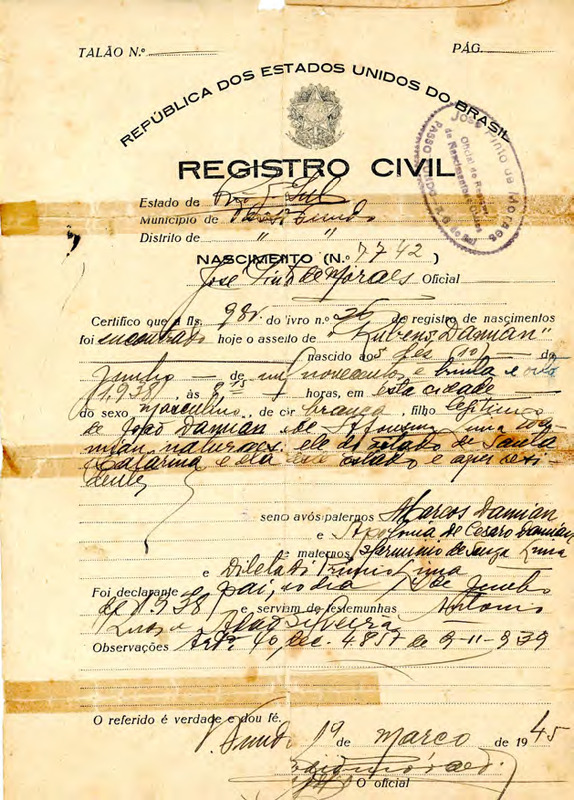 TALÃO N.º
PÁG.
REPÚBLICA DOS ESTADOS UNIDOS DO BRASIL
José Pinto de Moraes
Oficial do Registro
de Nascimentos
PASSO FUNDO
REGISTRO CIVIL
Estado de Rio G. Sul
Município de Passo Fundo
Distrito de " "
NASCIMENTO (N.º 7742)
José Pinto de Moraes Oficial
Certifico que a fls. 98v. do livro n.º 26 de registro de nascimentos
foi encontrado hoje o assento de "Rubens Damian"
nascido aos dez (10) de
Junho de mil novecentos e trinta e oito
1938, às 8,15 horas, em esta cidade
do sexo masculino, de côr branca, filho legitimo
de João Damian e de Lima Da-
mian, naturaes: ele do Estado de Santa
Catarina e ela deste estado e aqui resi-
dentes
seno avós paternos Marcos Damian
e Apolonia de Cesaro Damian
maternos Herminio de Souza Lima
e Lima
Foi declarante o pai, no dia de Junho
de 1938 e serviram de testemunhas Antonio
e João Silveira
Observações Art. 40, dec. 4.857 de 9-11-939
O referido é verdade e dou fé.
P. Fundo 19 de março de 1945
O oficial